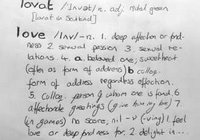 lovat /lʌvət/ n. adj. muted green
[Lovat in Scotland]
love /lʌv/ -n. 1. deep affection or fond-
ness 2. sexual passion 3. sexual re-
lations 4. a. beloved one; sweetheart
(often as form of address) b colloq.
form of address regardless affection.
5. colloq. person of whom one is fond 6.
affectionate greetings (give him my love) 7
(in games) no score, nil -v (-ving) 1 feel
love or deep fondness for 2 delight in...